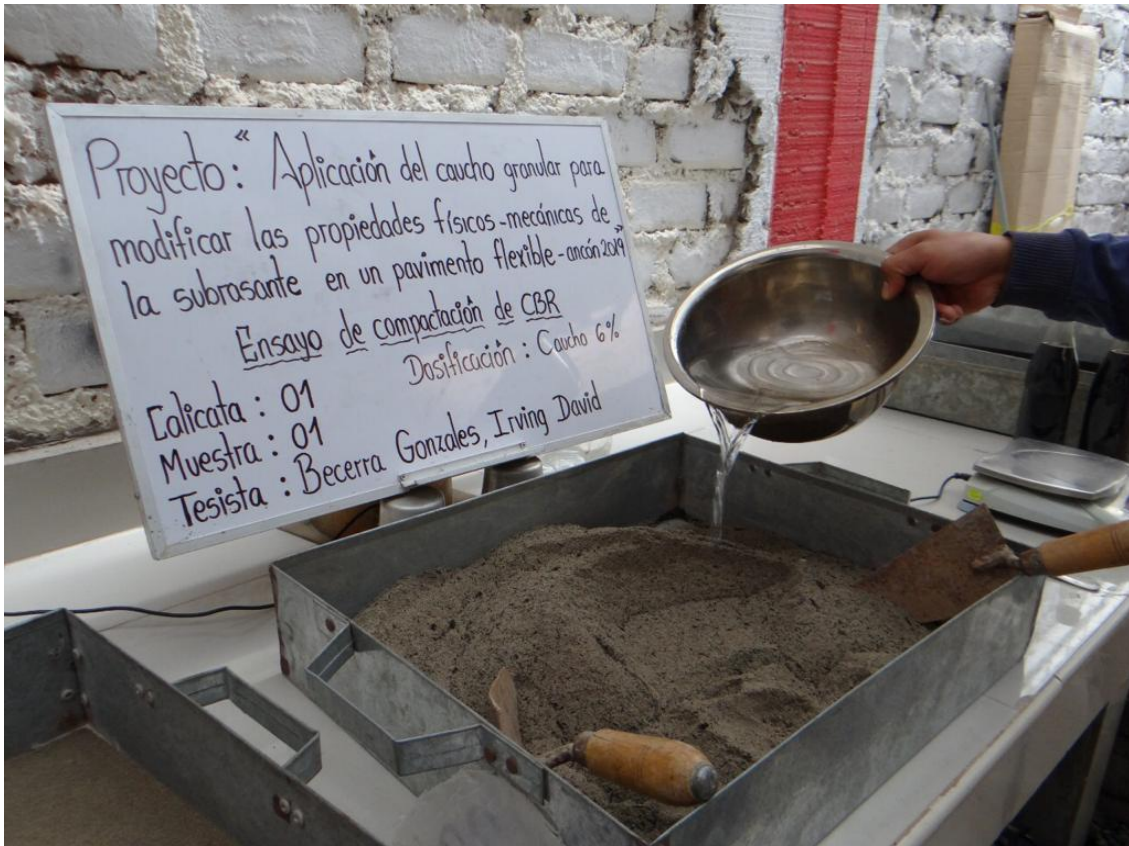 Proyecto: "Aplicación del caucho granular para
modificar las propiedades físicos-mecánicas de
la subrasante en un pavimento flexible-ancón 2019"
Ensayo de compactación de CBR
Dosificación : Caucho 6%
Calicata : 01
Muestra : 01
Tesista : Becerra Gonzales, Irving David